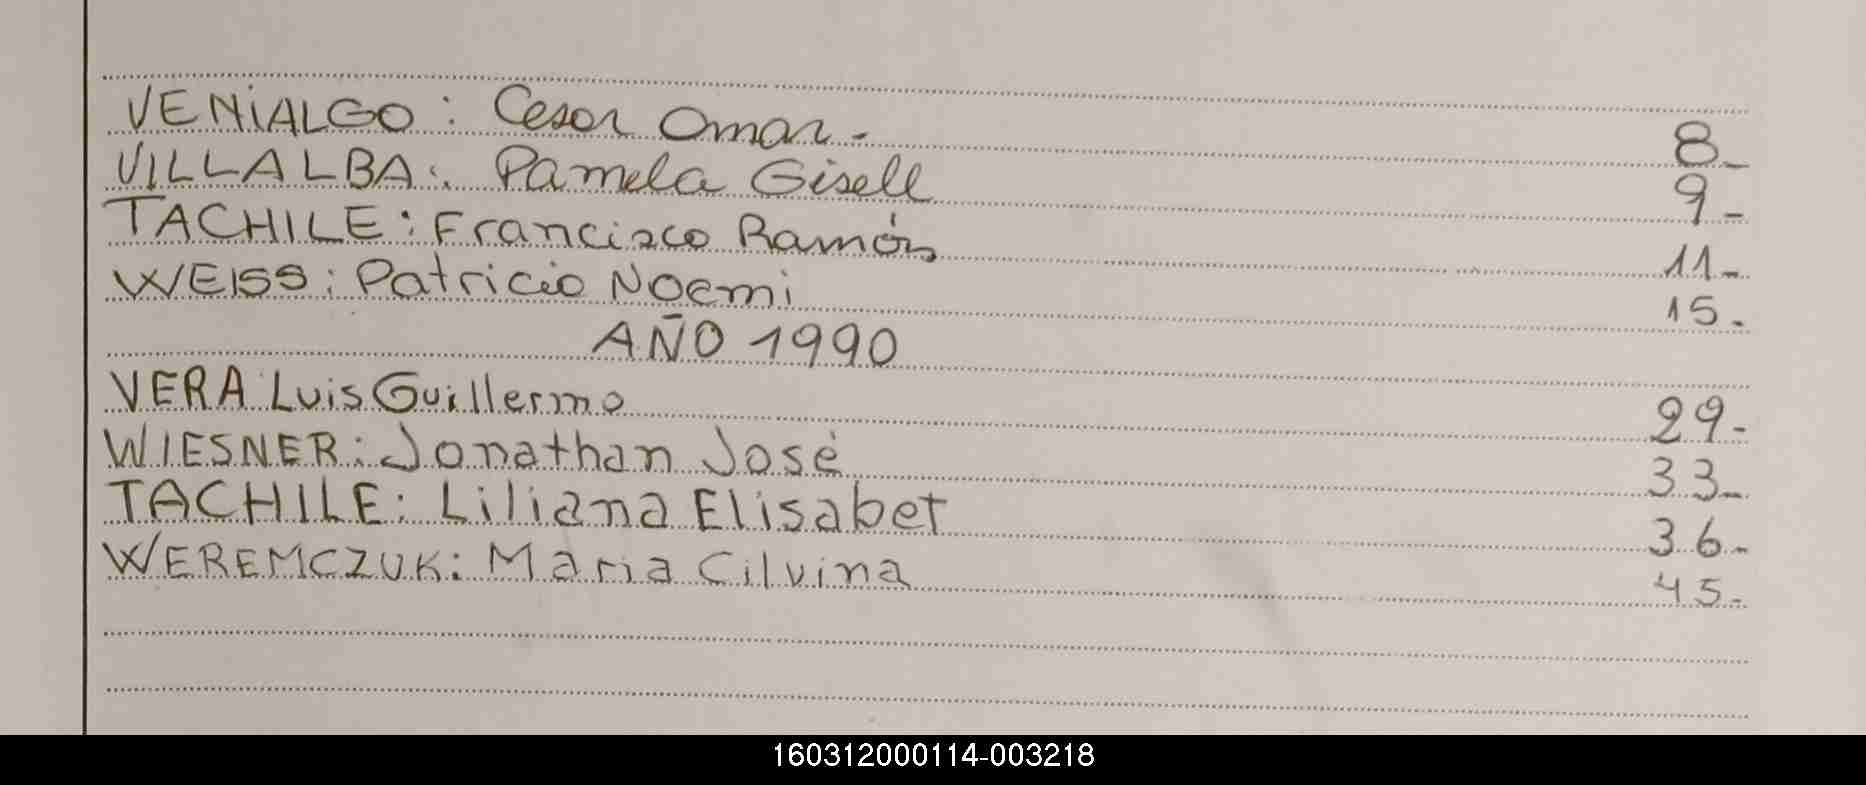 VENIALGO: Cesar Omar.- 8-
VILLALBA: Pamela Gisell 9-
TACHILE: Francisco Ramón 11-
WEISS: Patricia Noemi 15.
AÑO 1990
VERA Luis Guillermo 29-
WIESNER: Jonathan José 33-
TACHILE: Liliana Elisabet 36-
WEREMCZUK: Maria Cilvina 45-
160312000114-003218